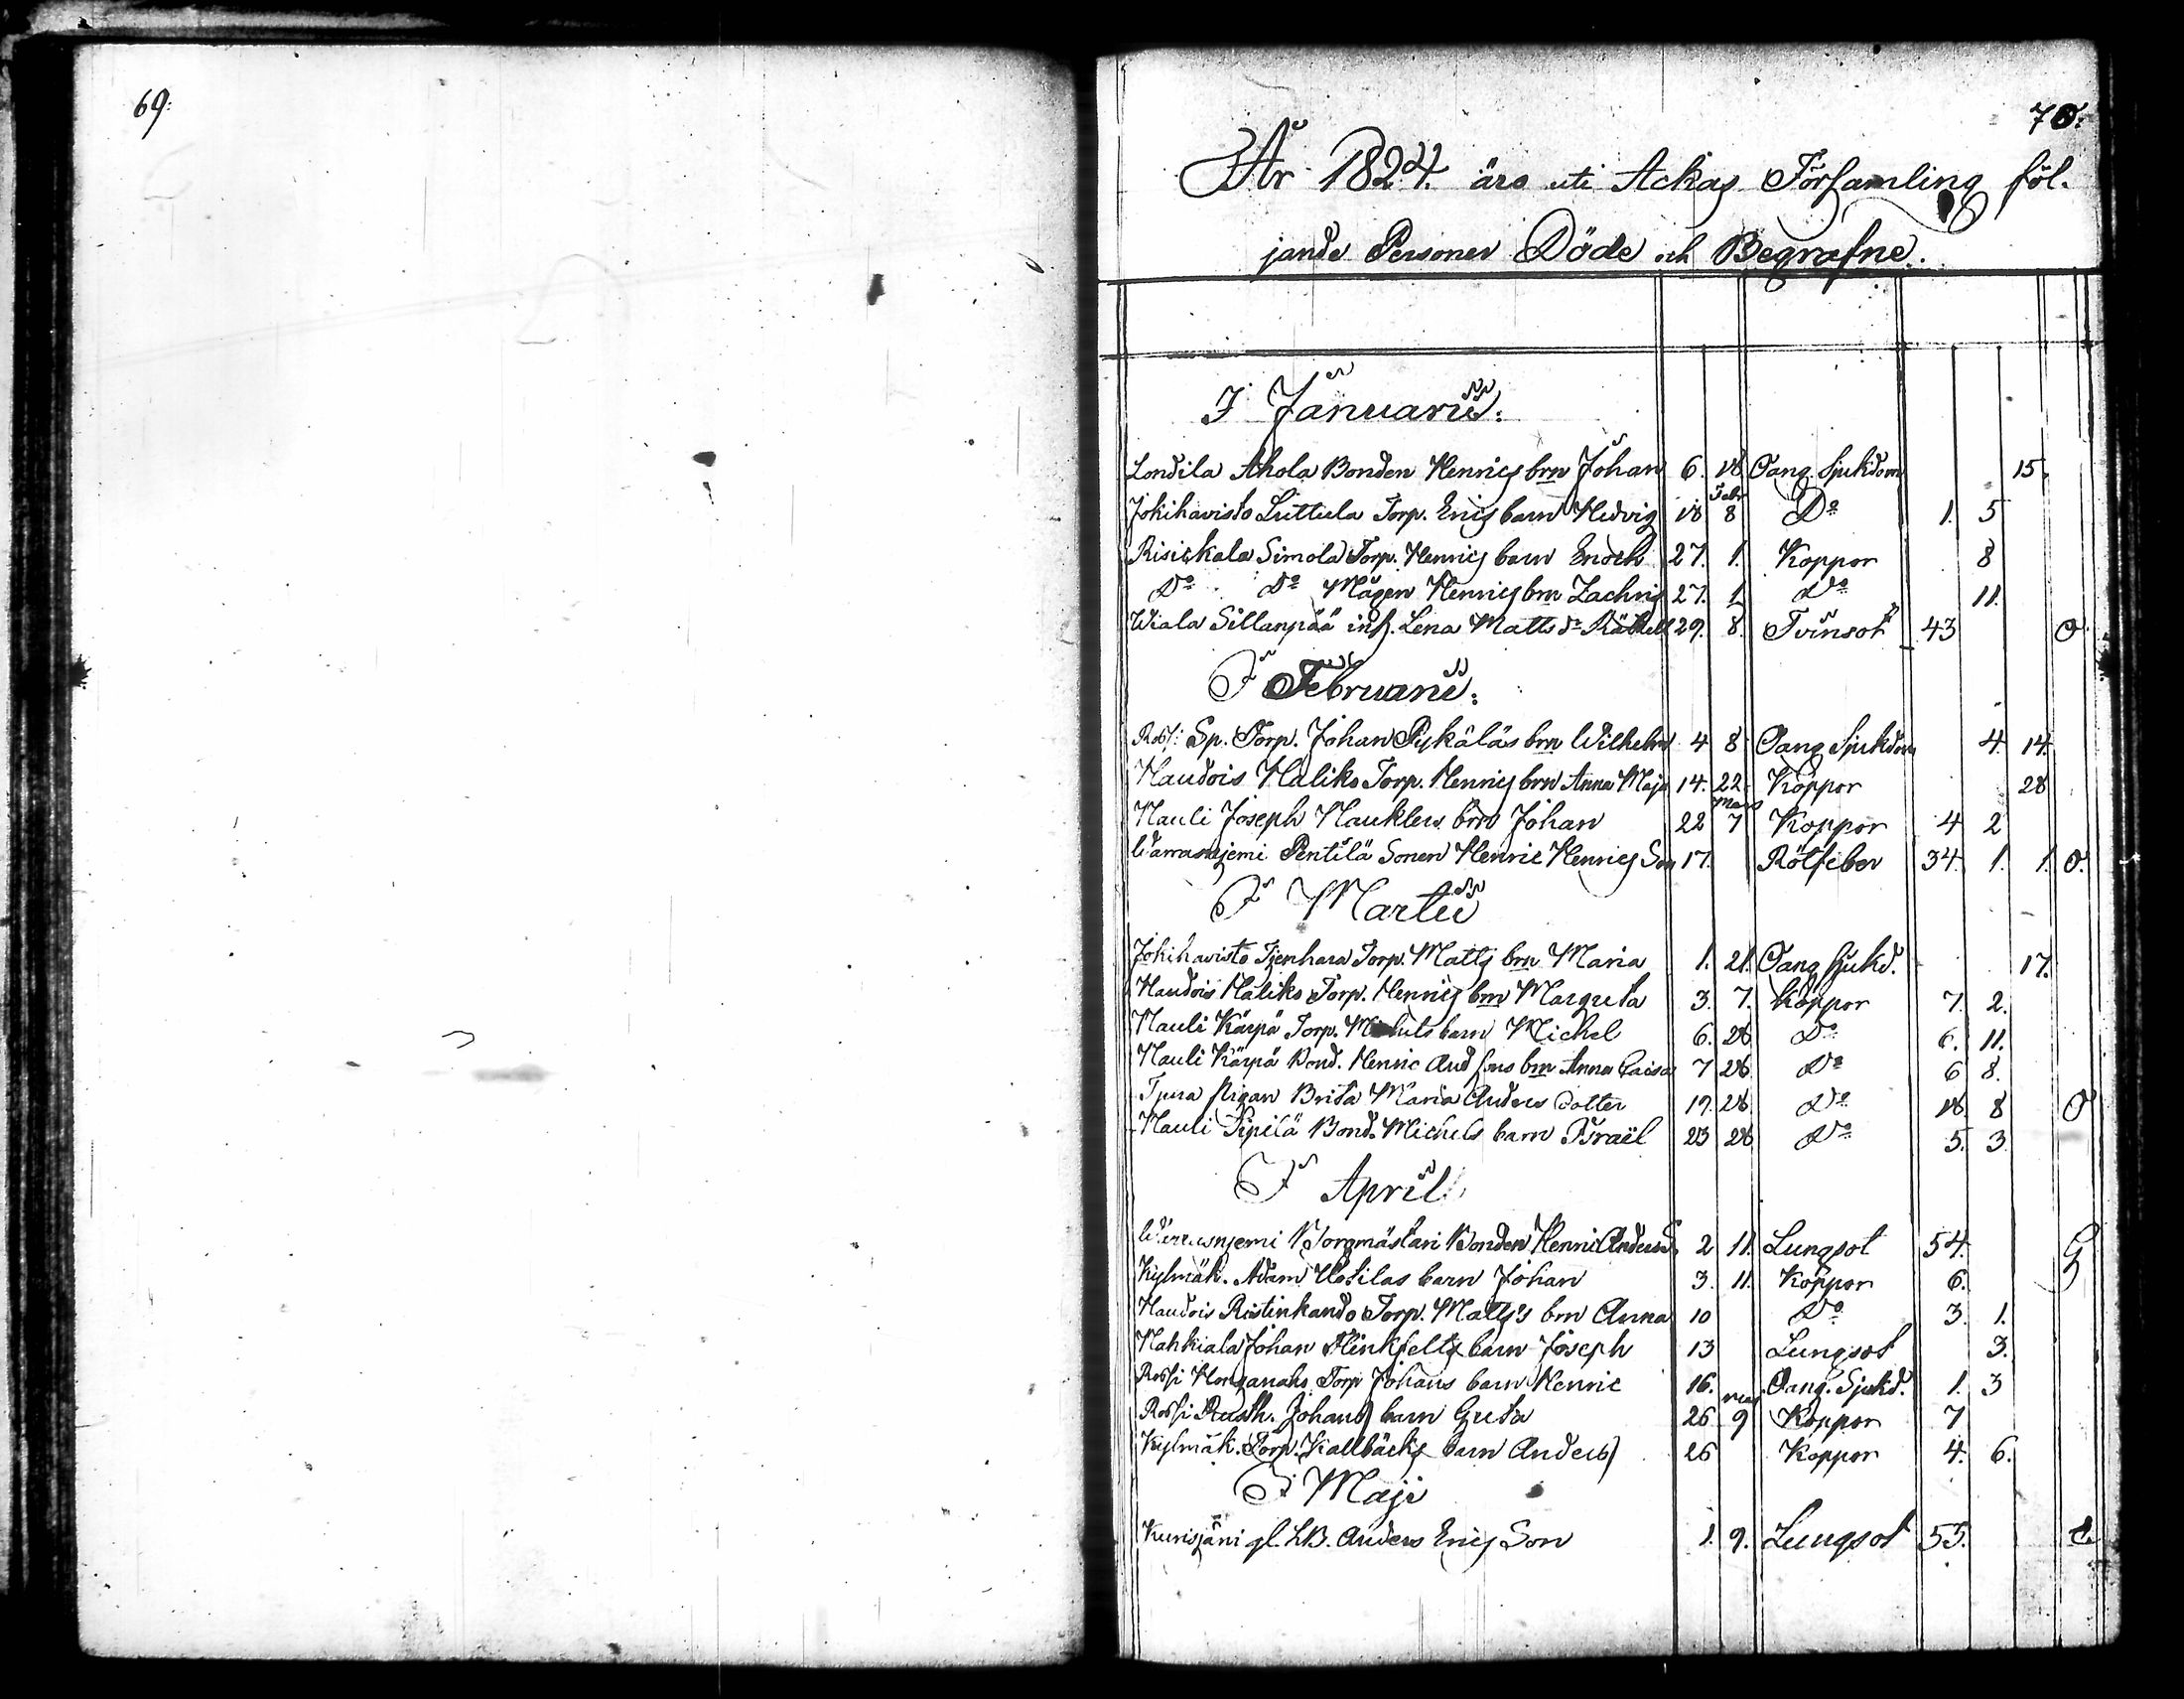 69:
70.
År 1824. äro uti Ackas Församling föl-
jande Personer Döde och Begrafne.
I Januarii:
Londila Ahola Bonden Henrics brn Johan 6. 18 Oang. Sjukdom 15.
Jokihavisto Luttula Torp. Erics barn Hedvig 18 Febr 8 Do 1. 5
Risickala Simola Torp. Henrics barn Enoch 27. 1. Koppor 8
Do Do Mågen Henrics brn Zachris 27. 1 Do 11.
Wiala Sillanpää inh. Lena Matts dr 29. 8. Tvinsot 43 O.
I Februarii:
Rossi Sp. Torp. Johan Pykäläs brn Wilhelm 4 8 Oang Sjukdom 4 14.
Haudois Haliko Torp. Henrics brn Anna Maja 14. 22 Koppor 28
Hauli Joseph Hauklers brn Johan 22 Mars 7 Koppor 4 2
Warrasnjemi Pentilä Sonen Henric Henrics Son 17. Rötfeber 34. 1. 1. O.
I Martii
Jokihavisto Torp. Matts brn Maria 1. 21. Oang Sjukd. 17.
Haudois Haliko Torp. Henrics brn Margreta 3. 7. Koppor 7. 2.
Hauli Kärpä Torp. Michels barn Michel 6. 28 Do 6. 11.
Hauli Kärpä Bond. Henric And sons brn Anna Caisa 7 28 Do 6 8.
Pigan Brita Maria Anders Dotter 19. 28. Do 18. 8 O
Hauli Pipilä Bond. Michels barn Israël 23 28 Do 5. 3
I April
Warrasnjemi Borgmästari Bonden Henric Anders S. 2 11. Lungsot 54. G
Kylmäk. Adam Uotilas barn Johan 3. 11. Koppor 6.
Haudois Ristinkando Torp. Matts's brn Anna 10 Do 3. 1.
Nahkiala Johan Flinkfelts barn Joseph 13 Lungsot 3.
Rossi Honganaho Torp Johans barn Henric 16. Oang. Sjukd. 1. 3
Rossi Rusth. Johans barn Greta 26 maj 9 Koppor 7
Kylmäk. Torp. Kallbäcks barn Anders 26 Koppor 4. 6.
I Maji
Kurisjäni gl. LB. Anders Erics Son 1. 9. Lungsot 55. E.